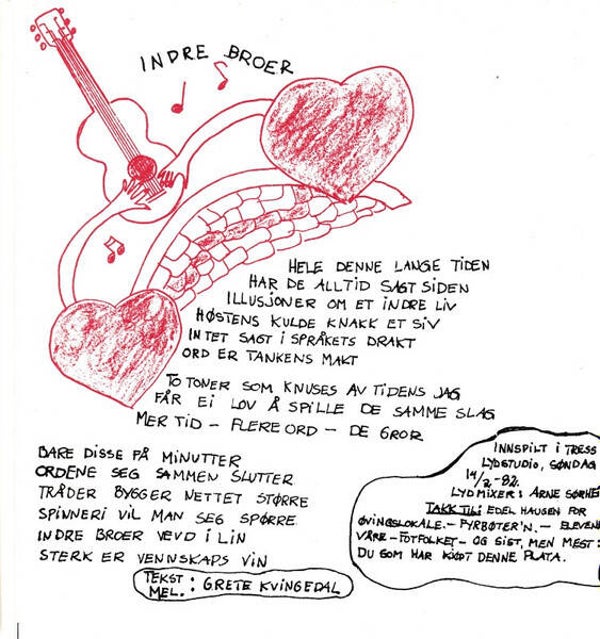 INDRE BROER
HELE DENNE LANGE TIDEN
HAR DE ALLTID SAGT SIDEN
ILLUSJONER OM ET INDRE LIV
HØSTENS KULDE KNAKK ET SIV
INTET SAGT I SPRÅKETS DRAKT
ORD ER TANKENS MAKT
TO TONER SOM KNUSES AV TIDENS JAG
FÅR EI LOV Å SPILLE DE SAMME SLAG
MER TID - FLERE ORD - DE GROR
BARE DISSE FÅ MINUTTER
ORDENE SEG SAMMEN SLUTTER
TRÅDER BYGGER NETTET STØRRE
SPINNERI VIL MAN SEG SPØRRE
INDRE BROER VEVD I LIN
STERK ER VENNSKAPS VIN
TEKST
MEL. : GRETE KVINGEDAL
INNSPILT I TRESS
LYDSTUDIO, SØNDAG
14/2-82.
LYDMIXER: ARNE SØRHEI
TAKK TIL: EDEL HAUSEN FOR
ØVINGSLOKALE.- FYRBØTER'N.- ELEVEN
VÅRE - FOTFOLKET - OG SIST, MEN MEST:
DU SOM HAR KJØPT DENNE PLATA.